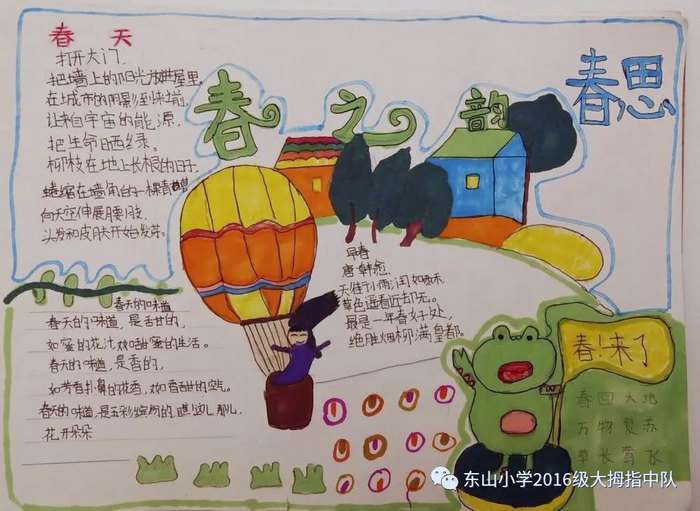 春天
打开大门,
把墙上的阳光放进屋里。
在城市的阴影到来之前,
让来自宇宙的能源,
把生命晒绿。
柳枝在地上长根的日子
蜷缩在墙角的一棵青
向天空伸展腰肢,
头发和皮肤开始发芽。
春之韵
春思
春天的味道
春天的味道,是甜的,
如蜜的花汁,
春天的味道,是香的,
春天的味道是五彩缤纷的,瞧这儿那儿,
花开朵朵
早春
唐 韩愈
天街小雨润如酥
草色遥看近却无。
最是一年春好处,
绝胜烟柳满皇都。
春!来了
春回大地
万物复苏
草长莺飞
东山小学2016级大拇指中队